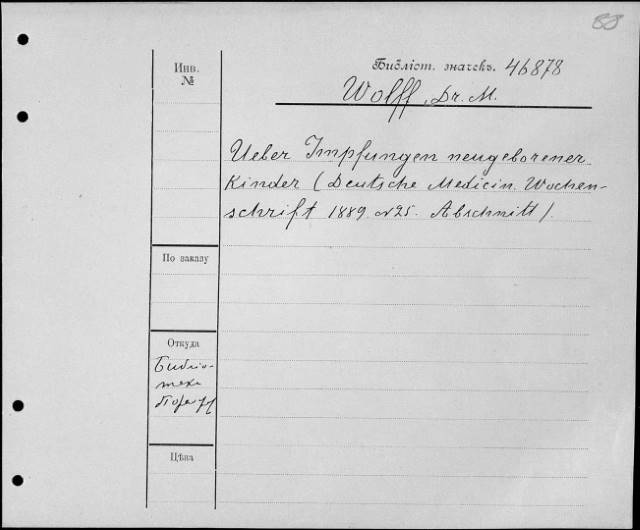 88
Инв.
№
Библіот. значекъ. 46878
Wolff, Dr. M.
Ueber Impfungen neugeborener
Kinder (Deutsche Medicin. Wochen-
schrift 1889. №25. Abschnitt).
По заказу
Откуда
Библіо-
тека
Цѣна